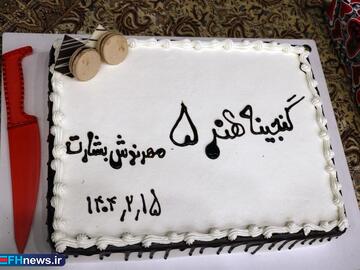 گنجینه هنر ۵
مهرنوش بشارت
۱۴۰۴,۲,۱۵
FHnews.ir